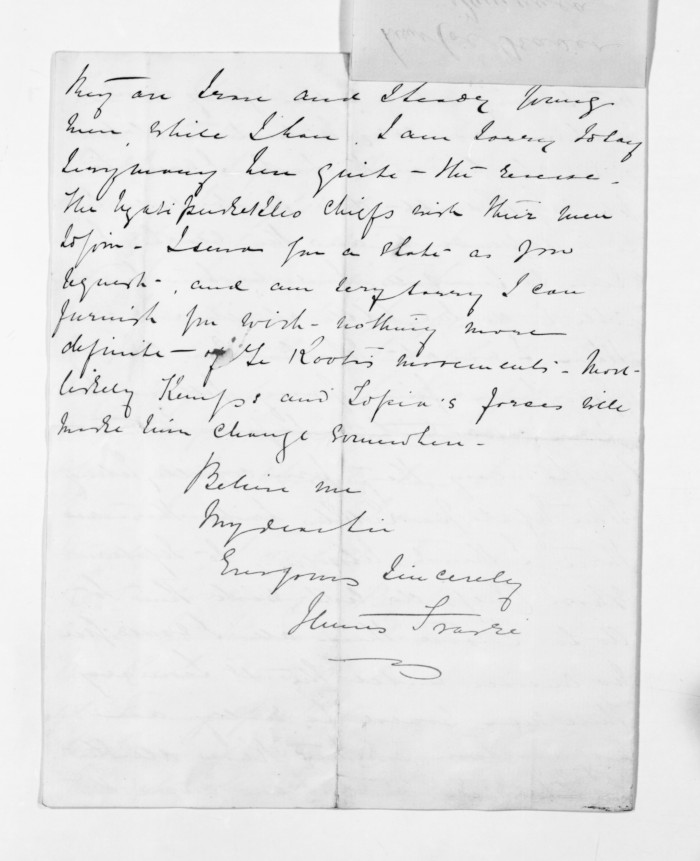 They are and steady young
men, while I have, I am sorry to say
very many here quite - the reverse -
The chiefs wish their men
to join - I send you a state - as you
request -, and am very sorry I can
furnish you with - nothing more
definite - of Te Kooti's movements - Most
likely Kemp's and Topia's forces will
make him change somewhere -
Believe me
My dear Sir
Ever yours sincerely
James Fraser